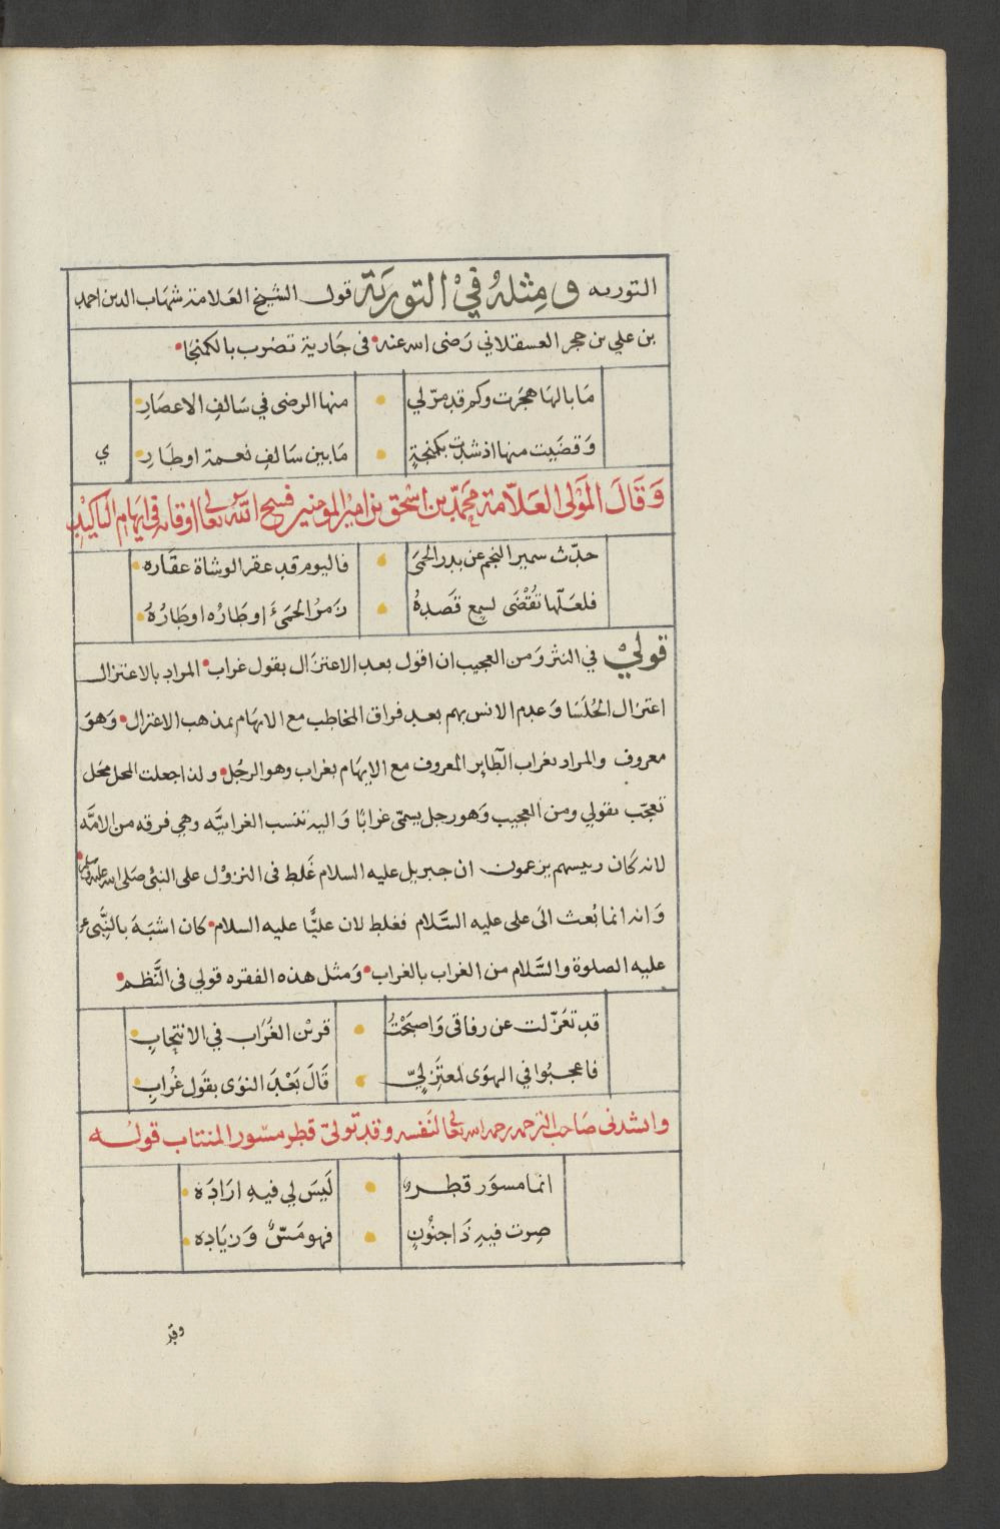 التوريه ومثله في التورية قول الشيخ العلامة شهاب الدين احمد
بن علي بن حجر العسقلاني رضى الله عنه في جارية تضرب بالكمنجا
ما بالها هجرت وكم قد مر لي منها الرضى في سالف الاعصار
وقضيت منها اذ شدت بكمنجة ما بين سالف نعمة اوطار ي
وقال المولى العلامة محمد بن اسحق بن امير المومنين فسح الله تعالى اوقاته في ايهام التاكيد
حدث سمير النجم عن بدر الحمى فاليوم قد عقر الوشاة عقاره
فلعلها تقضى لسع قصده زمر الحمى اوطاره اوطاره
قولي في النثر ومن العجيب ان اقول بعد الاعتزال بقول غراب المراد بالاعتزال
اعتزال الجلسا وعدم الانس بهم بعد فراق المخاطب مع الايهام بمذهب الاعتزال وهو
معروف والمراد بغراب الطاير المعروف مع الايهام بغراب وهو الرجل ولذا جعلت المحل محل
تعجب بقولي ومن العجيب وهو رجل يسمى غرابا واليه تنسب الغرابيه وهي فرقه من الامه
لانه كان رييسهم يزعمون ان جبريل عليه السلام غلط في النزول على النبي صلى الله عليه وسلم
وانه انما بعث الى علي عليه السلام فغلط لان عليا عليه السلام كان اشبه بالنبي
عليه الصلوة والسلام من الغراب بالغراب ومثل هذه الفقره قولي في النظم
قد تعزلت عن رفاقي واصبحت قرين الغراب في الانتحاب
فاعجبوا في الهوى لمعتزلي قال بعد النوى بقول غراب
وانشدني صاحب الترجمه رحمه الله تعالى لنفسه وقد تولى قطر مسور المنتاب قوله
انما مسور قطر ليس لي فيه ارادة
صرت فيه ذا جنون فهو مس وزياده
وقد